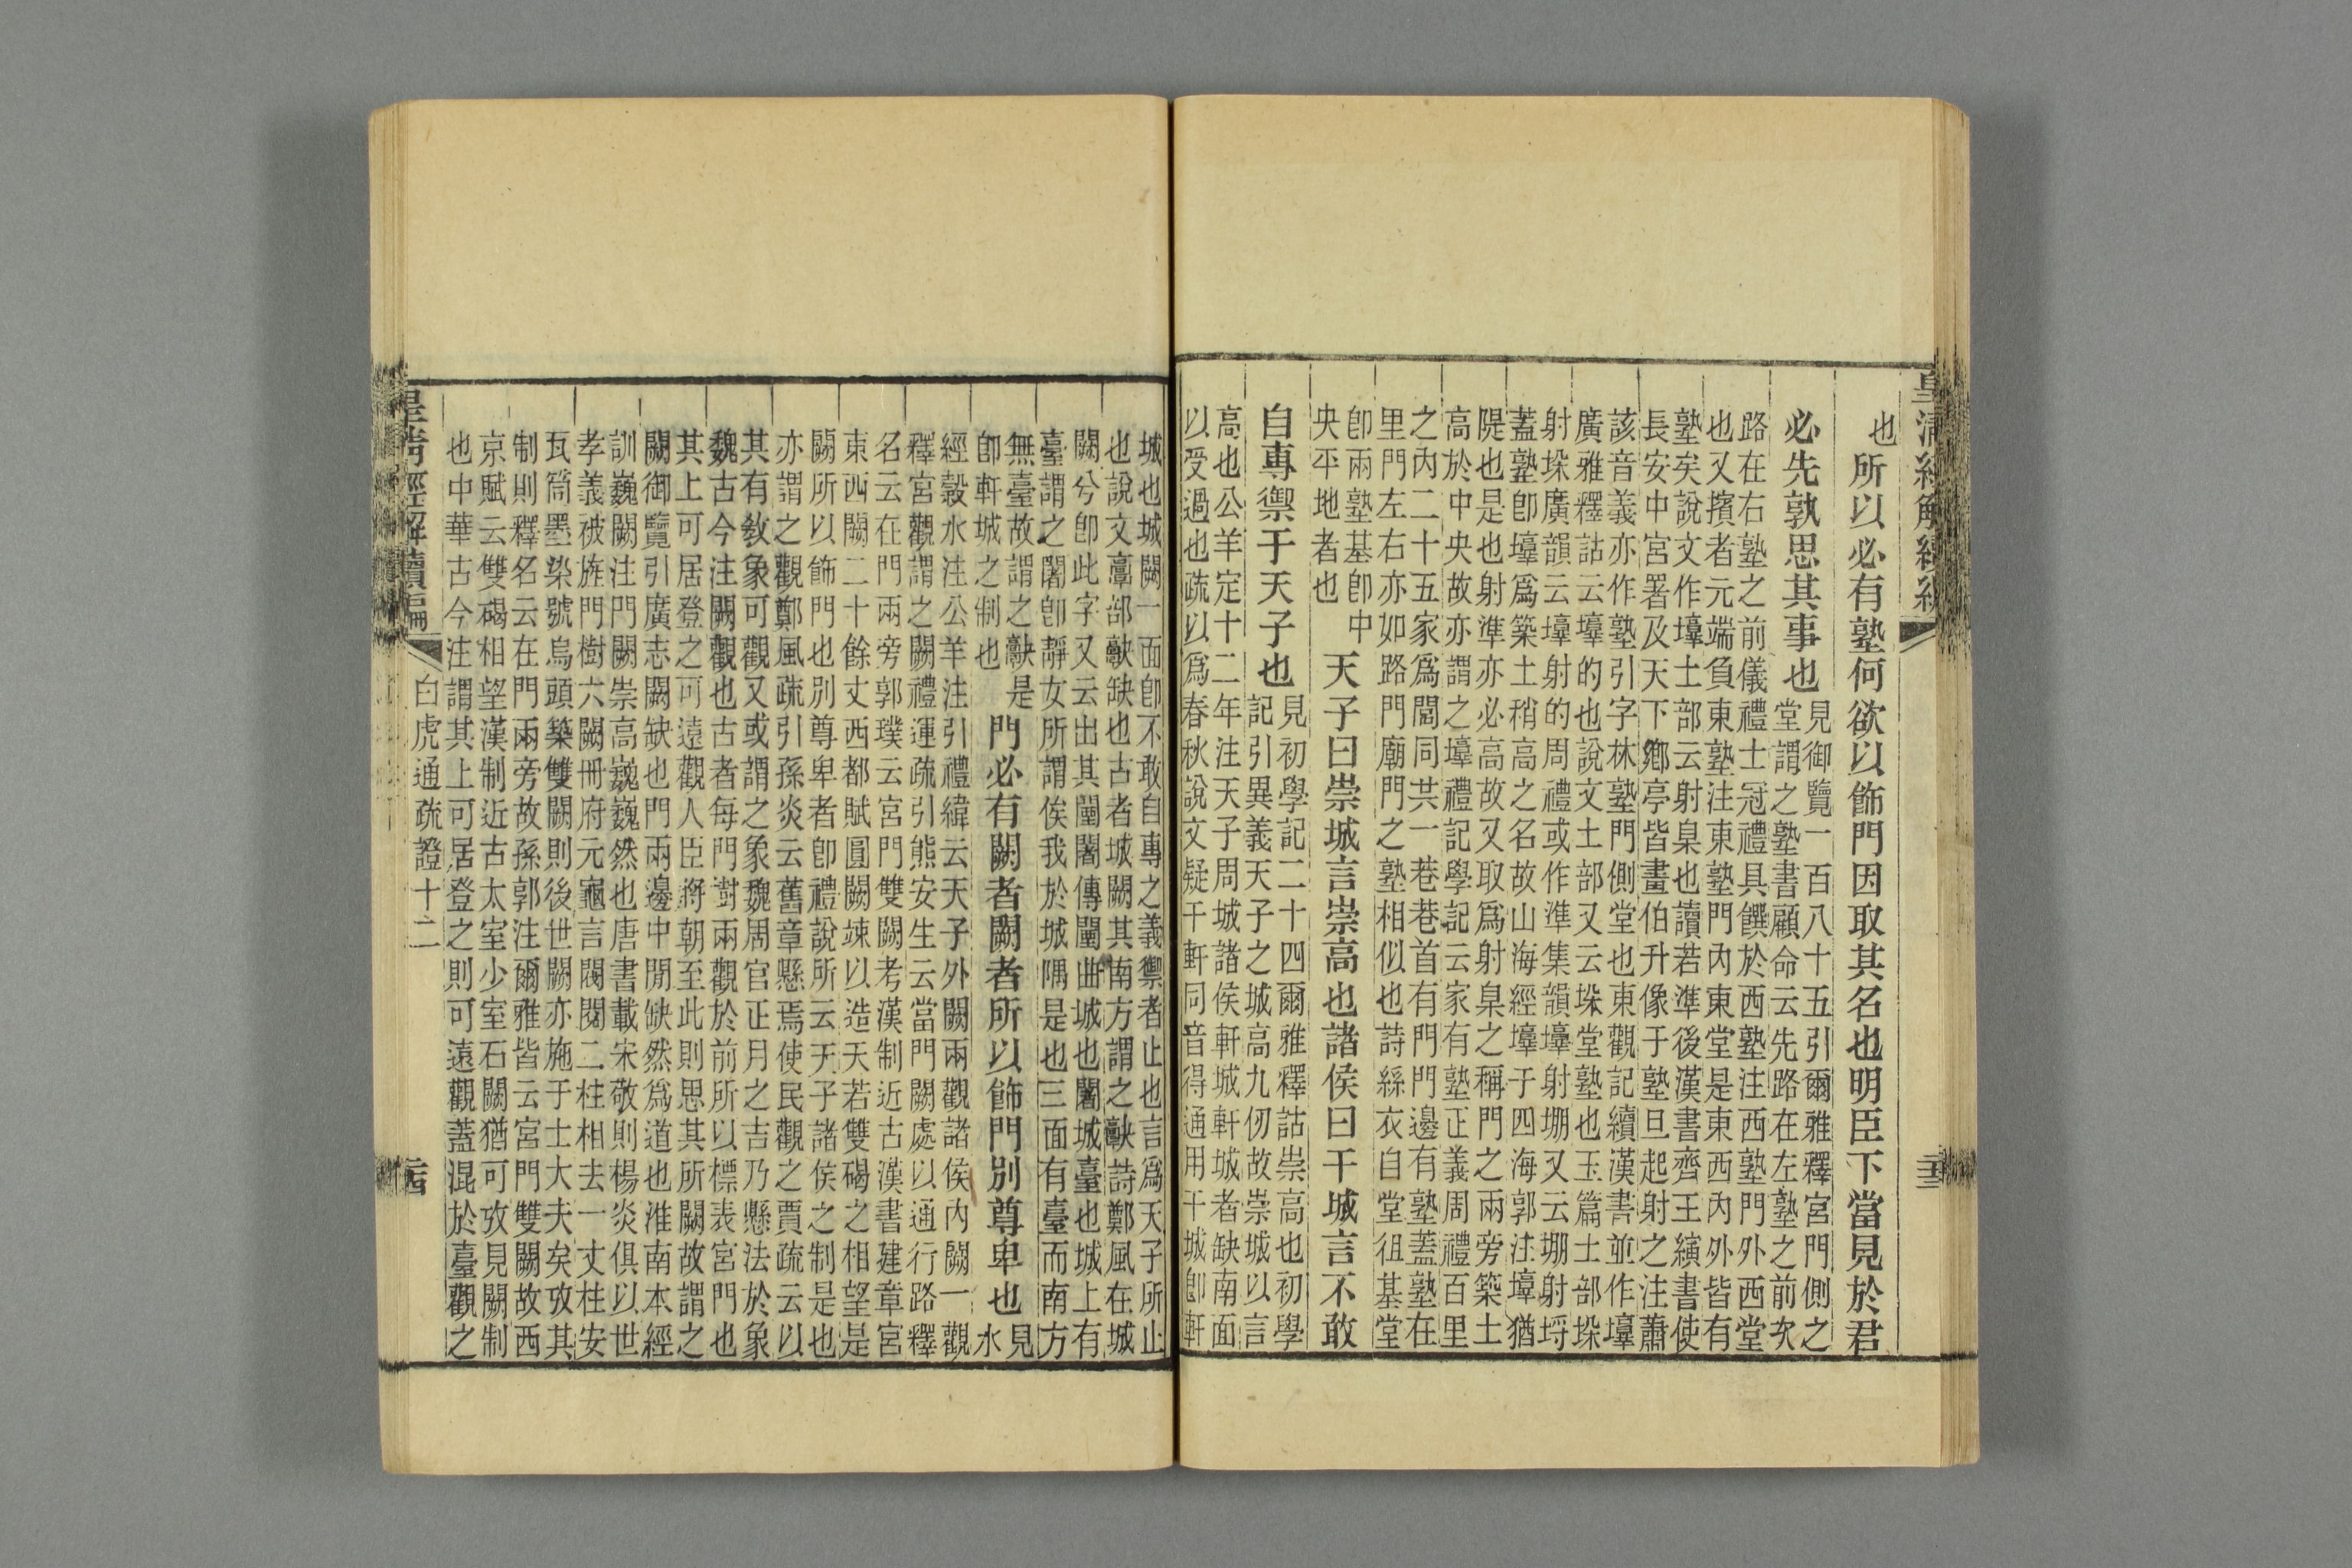 皇清經解續編
也所以必有塾何欲以飾門因取其名也明臣下當見於君
必先孰思其事也見御覽一百八十五引爾雅釋宮門側之
堂謂之塾書顧命云先路在左塾之前次
路在右塾之前儀禮士冠禮具饌於西塾注西塾門外西堂
也又擯者元端負東塾注東塾門內東堂是東西內外皆有
塾矣說文作壔土部云射臬也讀若準後漢書齊王縯書使
長安中宮署及天下鄉亭皆畫伯升像于塾旦起射之注蕭
該音義亦作塾引字林塾門側堂也東觀記續漢書並作壔
廣雅釋詁云壔的也說文土部又云垜堂塾也玉篇土部垜
射垜廣韻云壔射的周禮或作準集韻壔射堋又云堋射埓
蓋塾卽壔爲築土稍高之名故山海經壔于四海郭注壔猶
隄也是也射準亦必高故又取爲射臬之稱門之兩旁築土
高於中央故亦謂之壔禮記學記云家有塾正義周禮百里
之內二十五家爲閭同共一巷巷首有門門邊有塾蓋塾在
里門左右亦如路門廟門之塾相似也詩絲衣自堂徂基堂
卽兩塾基卽中
央平地者也天子曰崇城言崇高也諸侯曰干城言不敢
自專禦于天子也見初學記二十四爾雅釋詁崇高也初學
記引異義天子之城高九仞故崇城以言
高也公羊定十二年注天子周城諸侯軒城軒城者缺南面
以受過也疏以爲春秋說文疑干軒同音得通用干城卽軒
城也城闕一面卽不敢自專之義禦者止也言爲天子所止
也說文𩫏部䦼缺也古者城闕其南方謂之䦼詩鄭風在城
闕兮卽此字又云出其闉闍傳闉曲城也闍城臺也城上有
臺謂之闍卽靜女所謂俟我於城隅是也三面有臺而南方
無臺故謂之䦼是
卽軒城之制也門必有闕者闕者所以飾門別尊卑也見
水
經穀水注公羊注引禮緯云天子外闕兩觀諸侯內闕一觀
釋宮觀謂之闕禮運疏引熊安生云當門闕處以通行路釋
名云在門兩旁郭璞云宮門雙闕考漢制近古漢書建章宮
東西闕二十餘丈西都賦圓闕竦以造天若雙碣之相望是
闕所以飾門也別尊卑者卽禮說所云天子諸侯之制是也
亦謂之觀鄭風疏引孫炎云舊章懸焉使民觀之賈疏云以
其有敎象可觀又或謂之象魏周官正月之吉乃懸法於象
魏古今注闕觀也古者每門𣗳兩觀於前所以標表宮門也
其上可居登之可遠觀人臣將朝至此則思其所闕故謂之
闕御覽引廣志闕缺也門兩邊中閒缺然爲道也淮南本經
訓巍闕注門闕崇高巍巍然也唐書載宋敬則楊炎俱以世
孝義被旌門樹六闕冊府元龜言閥閱二柱相去一丈柱安
瓦筒墨染號烏頭築雙闕則後世闕亦施于士大夫矣攷其
制則釋名云在門兩旁故孫郭注爾雅皆云宮門雙闕故西
京賦云雙碣相望漢制近古太室少室石闕猶可攷見闕制
也中華古今注謂其上可居登之則可遠觀蓋混於臺觀之
皇淸經解續編
白虎通疏證十二